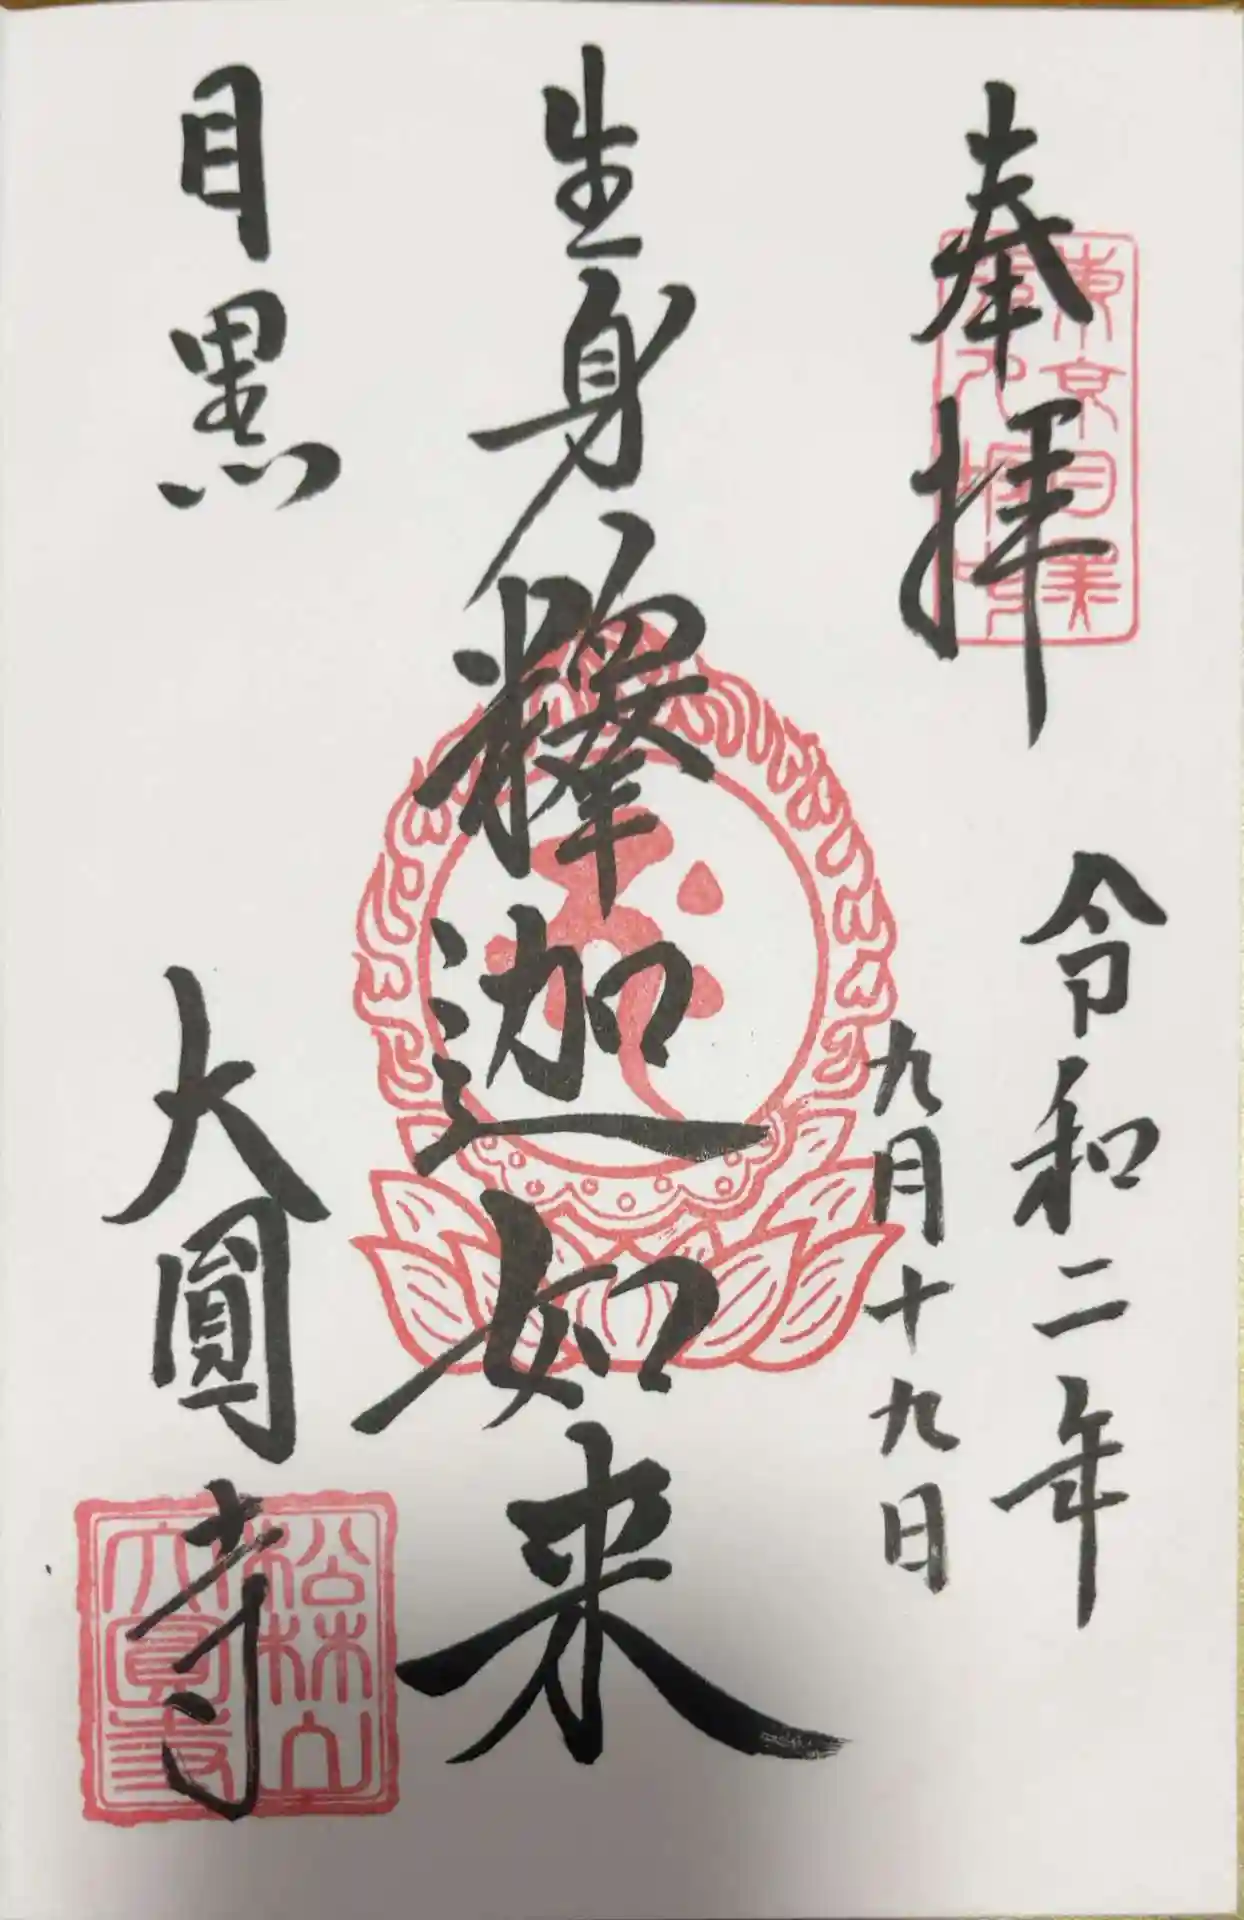 奉拝
東京目黒
令和二年
九月十九日
生身釋迦如来
目黒
大圓寺
松林山
大圓寺